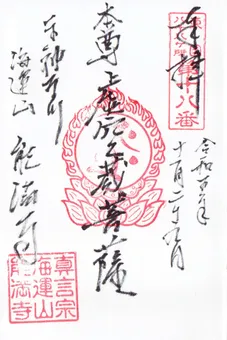 奉拝
十八番
令和
十一月二十
本尊
虚空蔵菩薩
海運山
能満寺
真言宗
海運山
能満寺